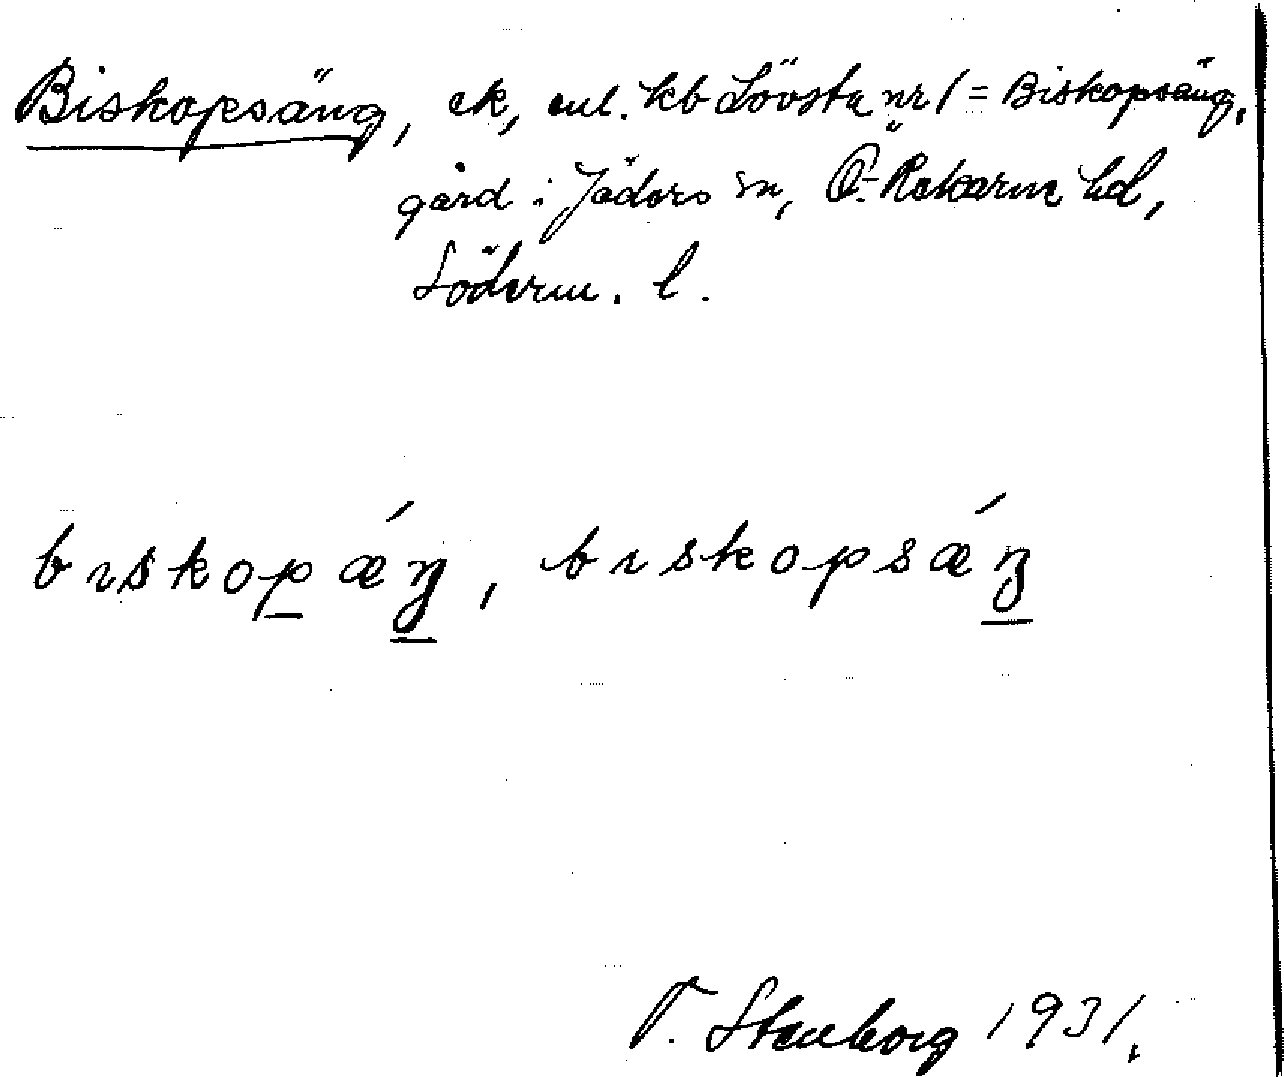 Biskopsäng, ek, enl. kb Lövsta nr 1 = Biskopsäng,
gård i Jäders sn, Ö-Rekarne hd,
Söderm. l.
bɩskopǽŋ, bɩskopsǽŋ
T. Stenborg 1931.